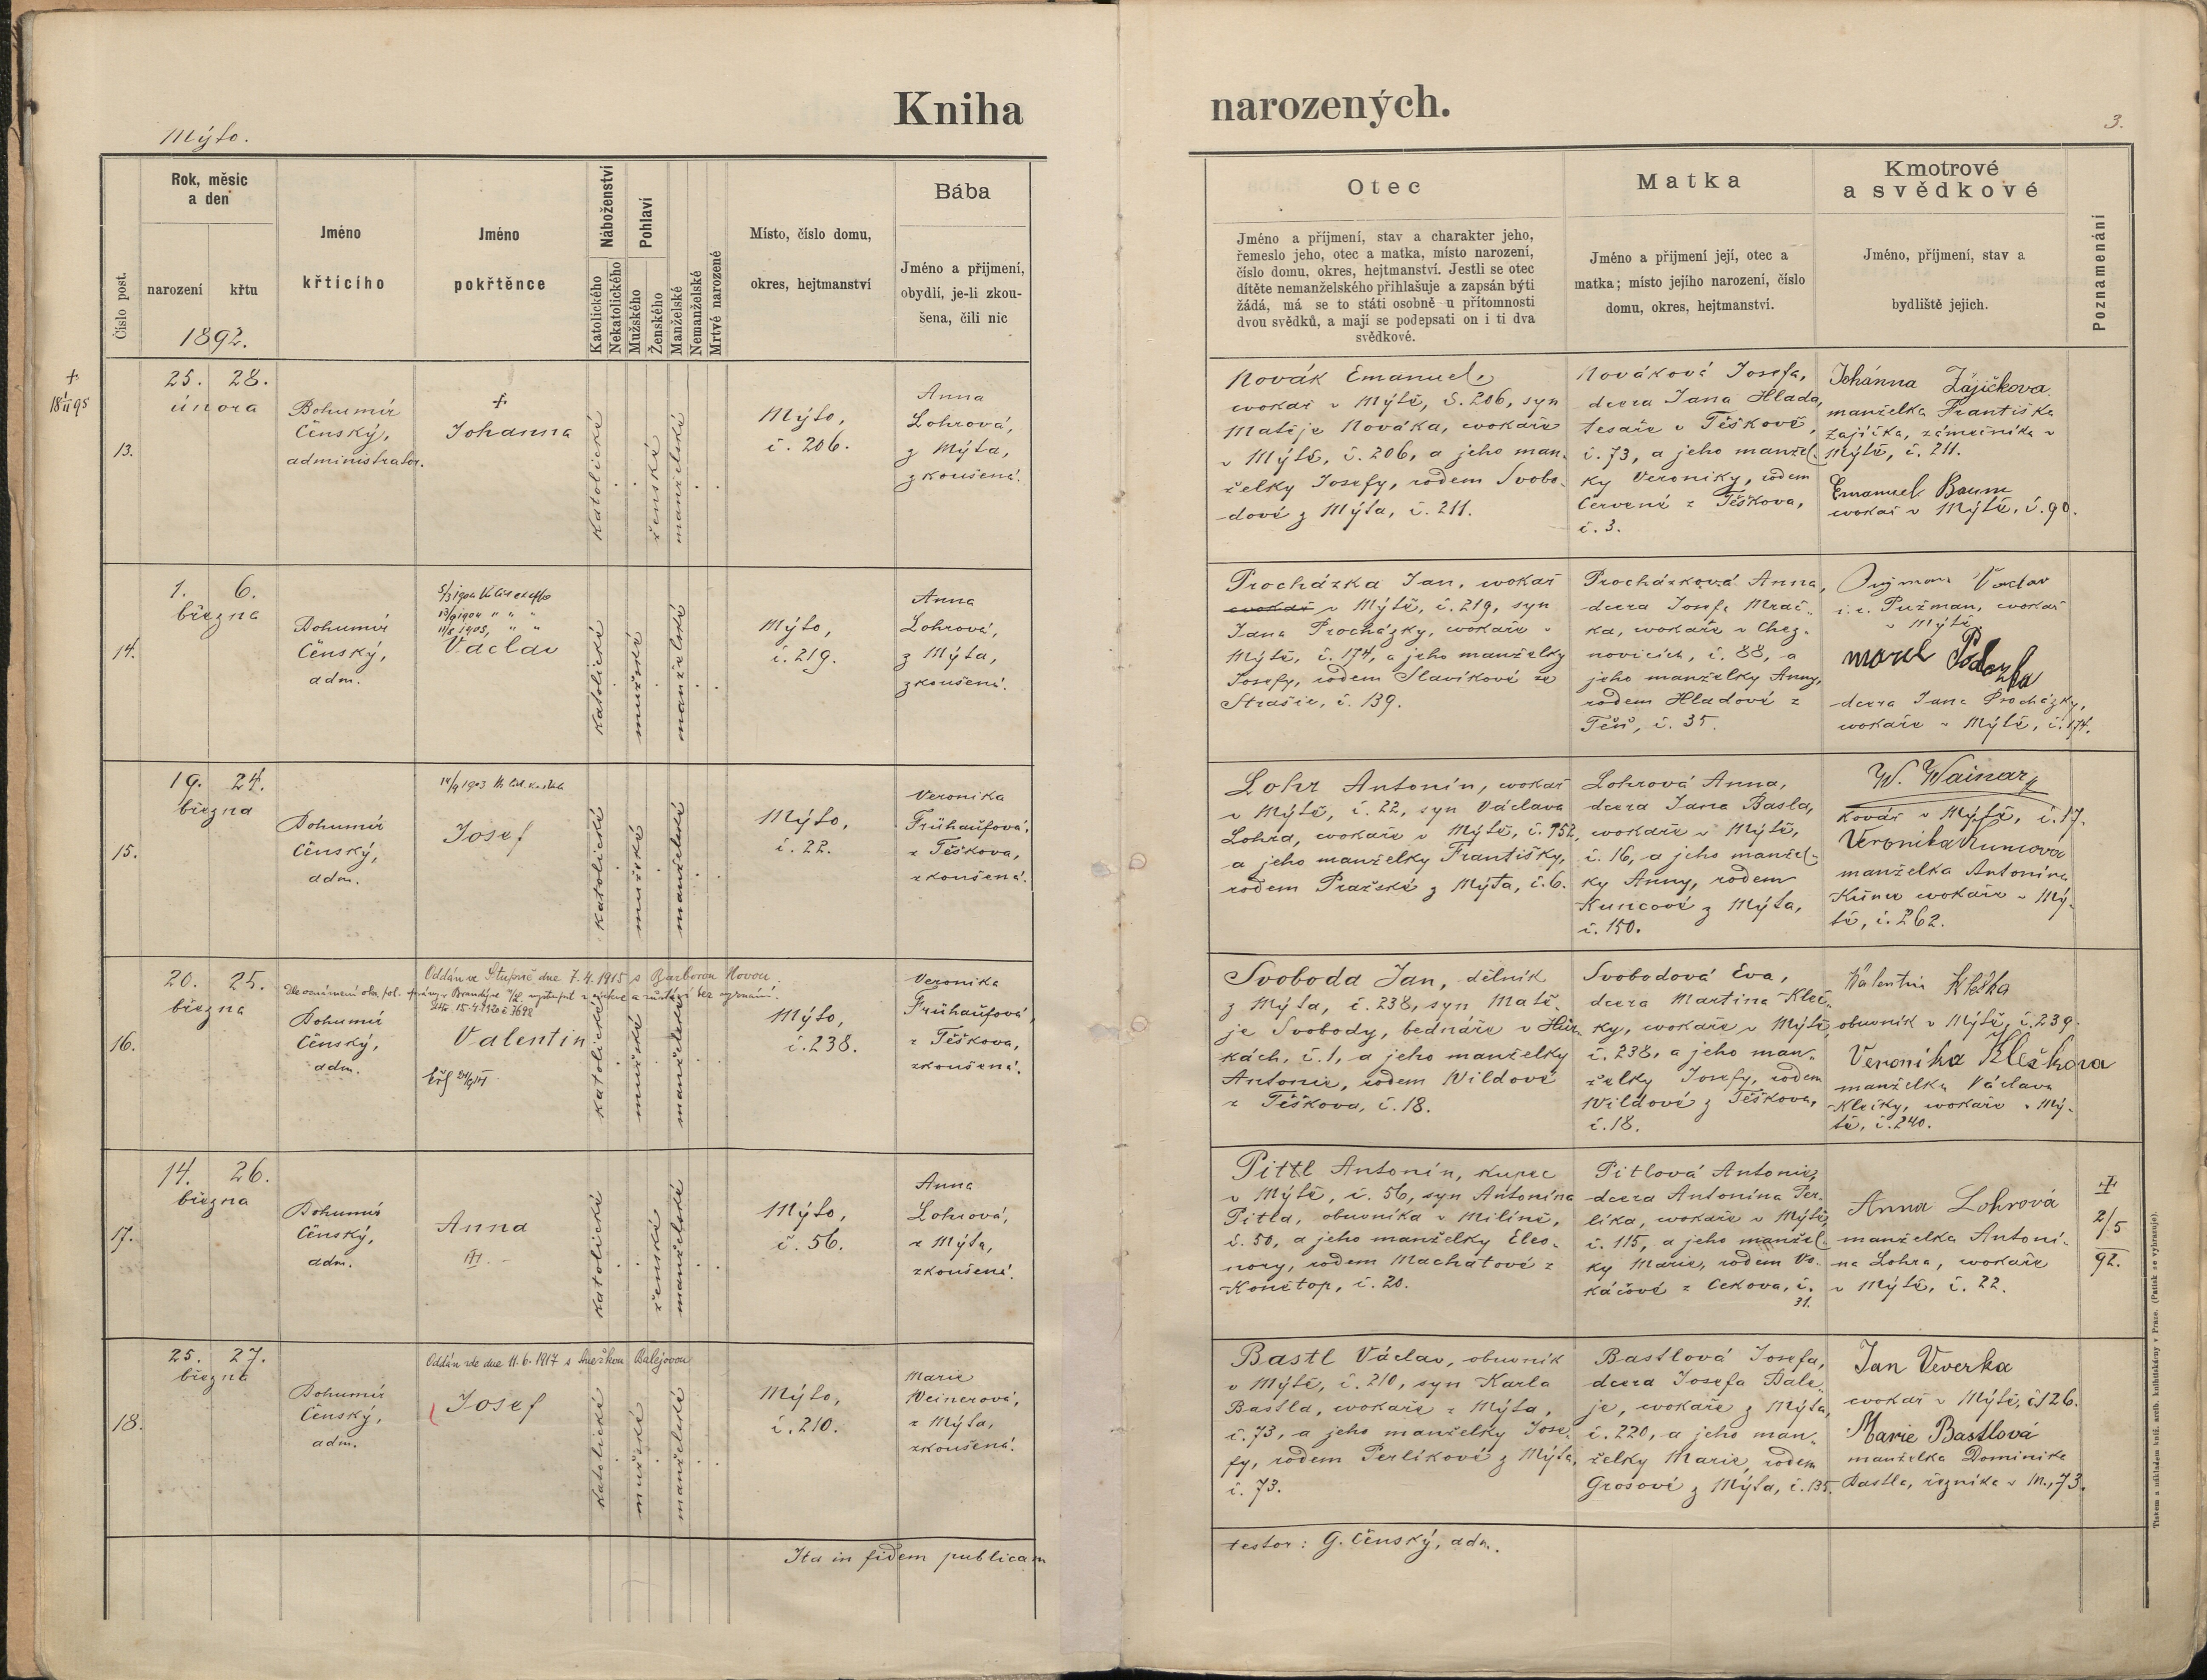 Kniha narozených.
Mýto.
3.
Číslo post.
Rok, měsíc
a den
narození
křtu
1892.
Jméno
křtícího
Jméno
pokřtěnce
Náboženství
Katolického
Nekatolického
Pohlaví
Mužského
Ženského
Manželské
Nemanželské
Mrtvě narozené
Místo, číslo domu,
okres, hejtmanství
Bába
Jméno a přijmení,
obydlí, je-li zkou-
šena, čili nic
Otec
Jméno a přijmení, stav a charakter jeho,
řemeslo jeho, otec a matka, místo narození,
číslo domu, okres, hejtmanství. Jestli se otec
dítěte nemanželského přihlašuje a zapsán býti
žádá, má se to státi osobně u přítomnosti
dvou svědků, a mají se podepsati on i ti dva
svědkové.
Matka
Jméno a přijmení její, otec a
matka; místo jejího narození, číslo
domu, okres, hejtmanství.
Kmotrové
a svědkové
Jméno, příjmení, stav a
bydliště jejich.
Poznamenání
+
18/II 95
13.
25. 28.
února
Bohumír
Čenský,
administrator.
+
Johanna
katolické
ženské
manželské
Mýto,
č. 206.
Anna
Lohrová,
z Mýta,
zkoušená.
Novák Emanuel,
cvokař v Mýtě, č. 206, syn
Matěje Nováka, cvokaře
v Mýtě, č. 206, a jeho man-
želky Josefy, rodem Svobo-
dové z Mýta, č. 211.
Nováková Josefa,
dcera Jana Hlada,
tesaře v Těškově,
č. 73, a jeho manžel-
ky Veroniky, rodem
Červené z Těškova,
č. 3.
Johánna Zájíčkova
manželka Františka
Zajíčka, zámečníka v
Mýtě, č. 211.
Emanuel Baum
cvokař v Mýtě, č. 90.
14.
1. 6.
března
Bohumír
Čenský,
adm.
Václav
katolické
mužské
manželské
Mýto,
č. 219.
Anna
Lohrová,
z Mýta,
zkoušená.
Procházka Jan, cvokař
cvokař v Mýtě, č. 219, syn
Jana Procházky, cvokaře v
Mýtě, č. 174, a jeho manželky
Josefy, rodem Slavíkové ze
Strašic, č. 139.
Procházková Anna,
dcera Josefa Mráč-
ka, cvokaře v Chez-
novicích, č. 88, a
jeho manželky Anny,
rodem Hladové z
Těň, č. 35.
Václav
i. e. Pužman, cvokař
v Mýtě
dcera Jana Procházky,
cvokaře v Mýtě, č. 174.
15.
19. 24.
března
Bohumír
Čenský,
adm.
Josef
katolické
mužské
manželské
Mýto,
č. 22.
Veronika
Frühaufová,
z Těškova,
zkoušená.
Lohr Antonín, cvokař
v Mýtě, č. 22, syn Václava
Lohra, cvokaře v Mýtě, č. 152,
a jeho manželky Františky,
rodem Pražské z Mýta, č. 6.
Lohrová Anna,
dcera Jana Basla,
cvokaře v Mýtě,
č. 16, a jeho manžel-
ky Anny, rodem
Kuncové z Mýta,
č. 150.
W. Wainar
Kovář v Mýtě, č. 17.
Veronika Kuncova
manželka Antonína
Kunce cvokaře v Mý-
tě, č. 262.
16.
20. 25.
března
Oddán ve Stupně dne 7.4.1915 s Barborou Novou.
Bohumír
Čenský,
adm.
Valentin
katolické
mužské
manželské
Mýto,
č. 238.
Veronika
Frühaufová,
z Těškova,
zkoušená.
Svoboda Jan, dělník
z Mýta, č. 238, syn Matě-
je Svobody, bednáře v Hůr-
kách, č. 1, a jeho manželky
Antonie, rodem Wildové
z Těškova, č. 18.
Svobodová Eva,
dcera Martina Kleč-
ky, cvokaře v Mýtě,
č. 238, a jeho man-
želky Josefy, rodem
Wildové z Těškova,
č. 18.
Walentin Klečka
obuvník v Mýtě, č. 239.
Veronika Klečkova
manželka Václava
Klečky, cvokaře v Mý-
tě, č. 240.
17.
14. 26.
března
Bohumír
Čenský,
adm.
Anna
katolické
ženské
manželské
Mýto,
č. 56.
Anna
Lohrová,
z Mýta,
zkoušená.
Pittl Antonín, kupec
v Mýtě, č. 56, syn Antonína
Pitla, obuvníka v Milíně,
č. 50, a jeho manželky Eleo-
nory, rodem Machatové z
Konětop, č. 20.
Pitlová Antonie,
dcera Antonína Per-
líka, cvokaře v Mýtě,
č. 115, a jeho manžel-
ky Marie, rodem Vo-
káčové z Cekova, č.
31.
Anna Lohrová
manželka Antoní-
na Lohra, cvokaře
v Mýtě, č. 22.
+
2/5
92.
18.
25. 27.
března
Oddán zde dne 11.6.1917 s Anežkou Balejovou
Bohumír
Čenský,
adm.
Josef
katolické
mužské
manželské
Mýto,
č. 210.
Marie
Weinerová,
z Mýta,
zkoušená.
Bastl Václav, obuvník
v Mýtě, č. 210, syn Karla
Bastla, cvokaře z Mýta,
č. 73, a jeho manželky Jose-
fy, rodem Perlíkové z Mýta,
č. 73.
Bastlová Josefa,
dcera Josefa Bale-
je, cvokaře z Mýta,
č. 220, a jeho man-
želky Marie, rodem
Grosové z Mýta, č. 135.
Jan Veverka
cvokař v Mýtě, č 126.
Marie Bastlová
manželka Dominika
Bastla, řezníka v M., 73.
Ita in fidem publicam
testor: G. Čenský, adm.